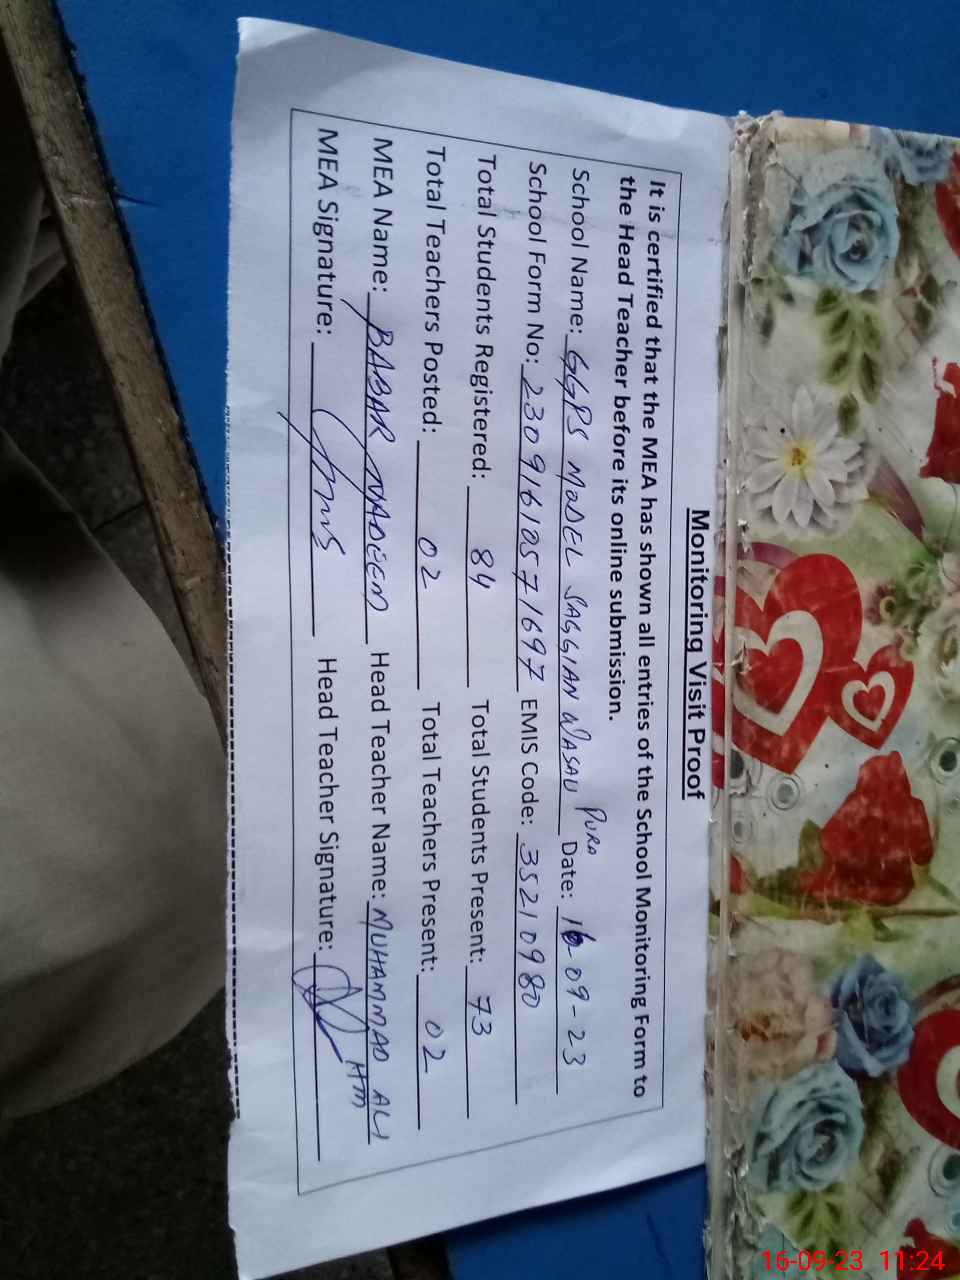 Monitoring Visit Proof
It is certified that the MEA has shown all entries of the School Monitoring Form to
the Head Teacher before its online submission.
School Name: GGPS MODEL SAGGIAN WASAU PURA Date: 16 09-23
School Form No: 23091610571697 EMIS Code: 35210980
Total Students Registered: 84 Total Students Present: 73
Total Teachers Posted: 02 Total Teachers Present: 02
MEA Name: BABAR NADEEM Head Teacher Name: MUHAMMAD ALI
MEA Signature: Head Teacher Signature: HM
16-09-23 11:24